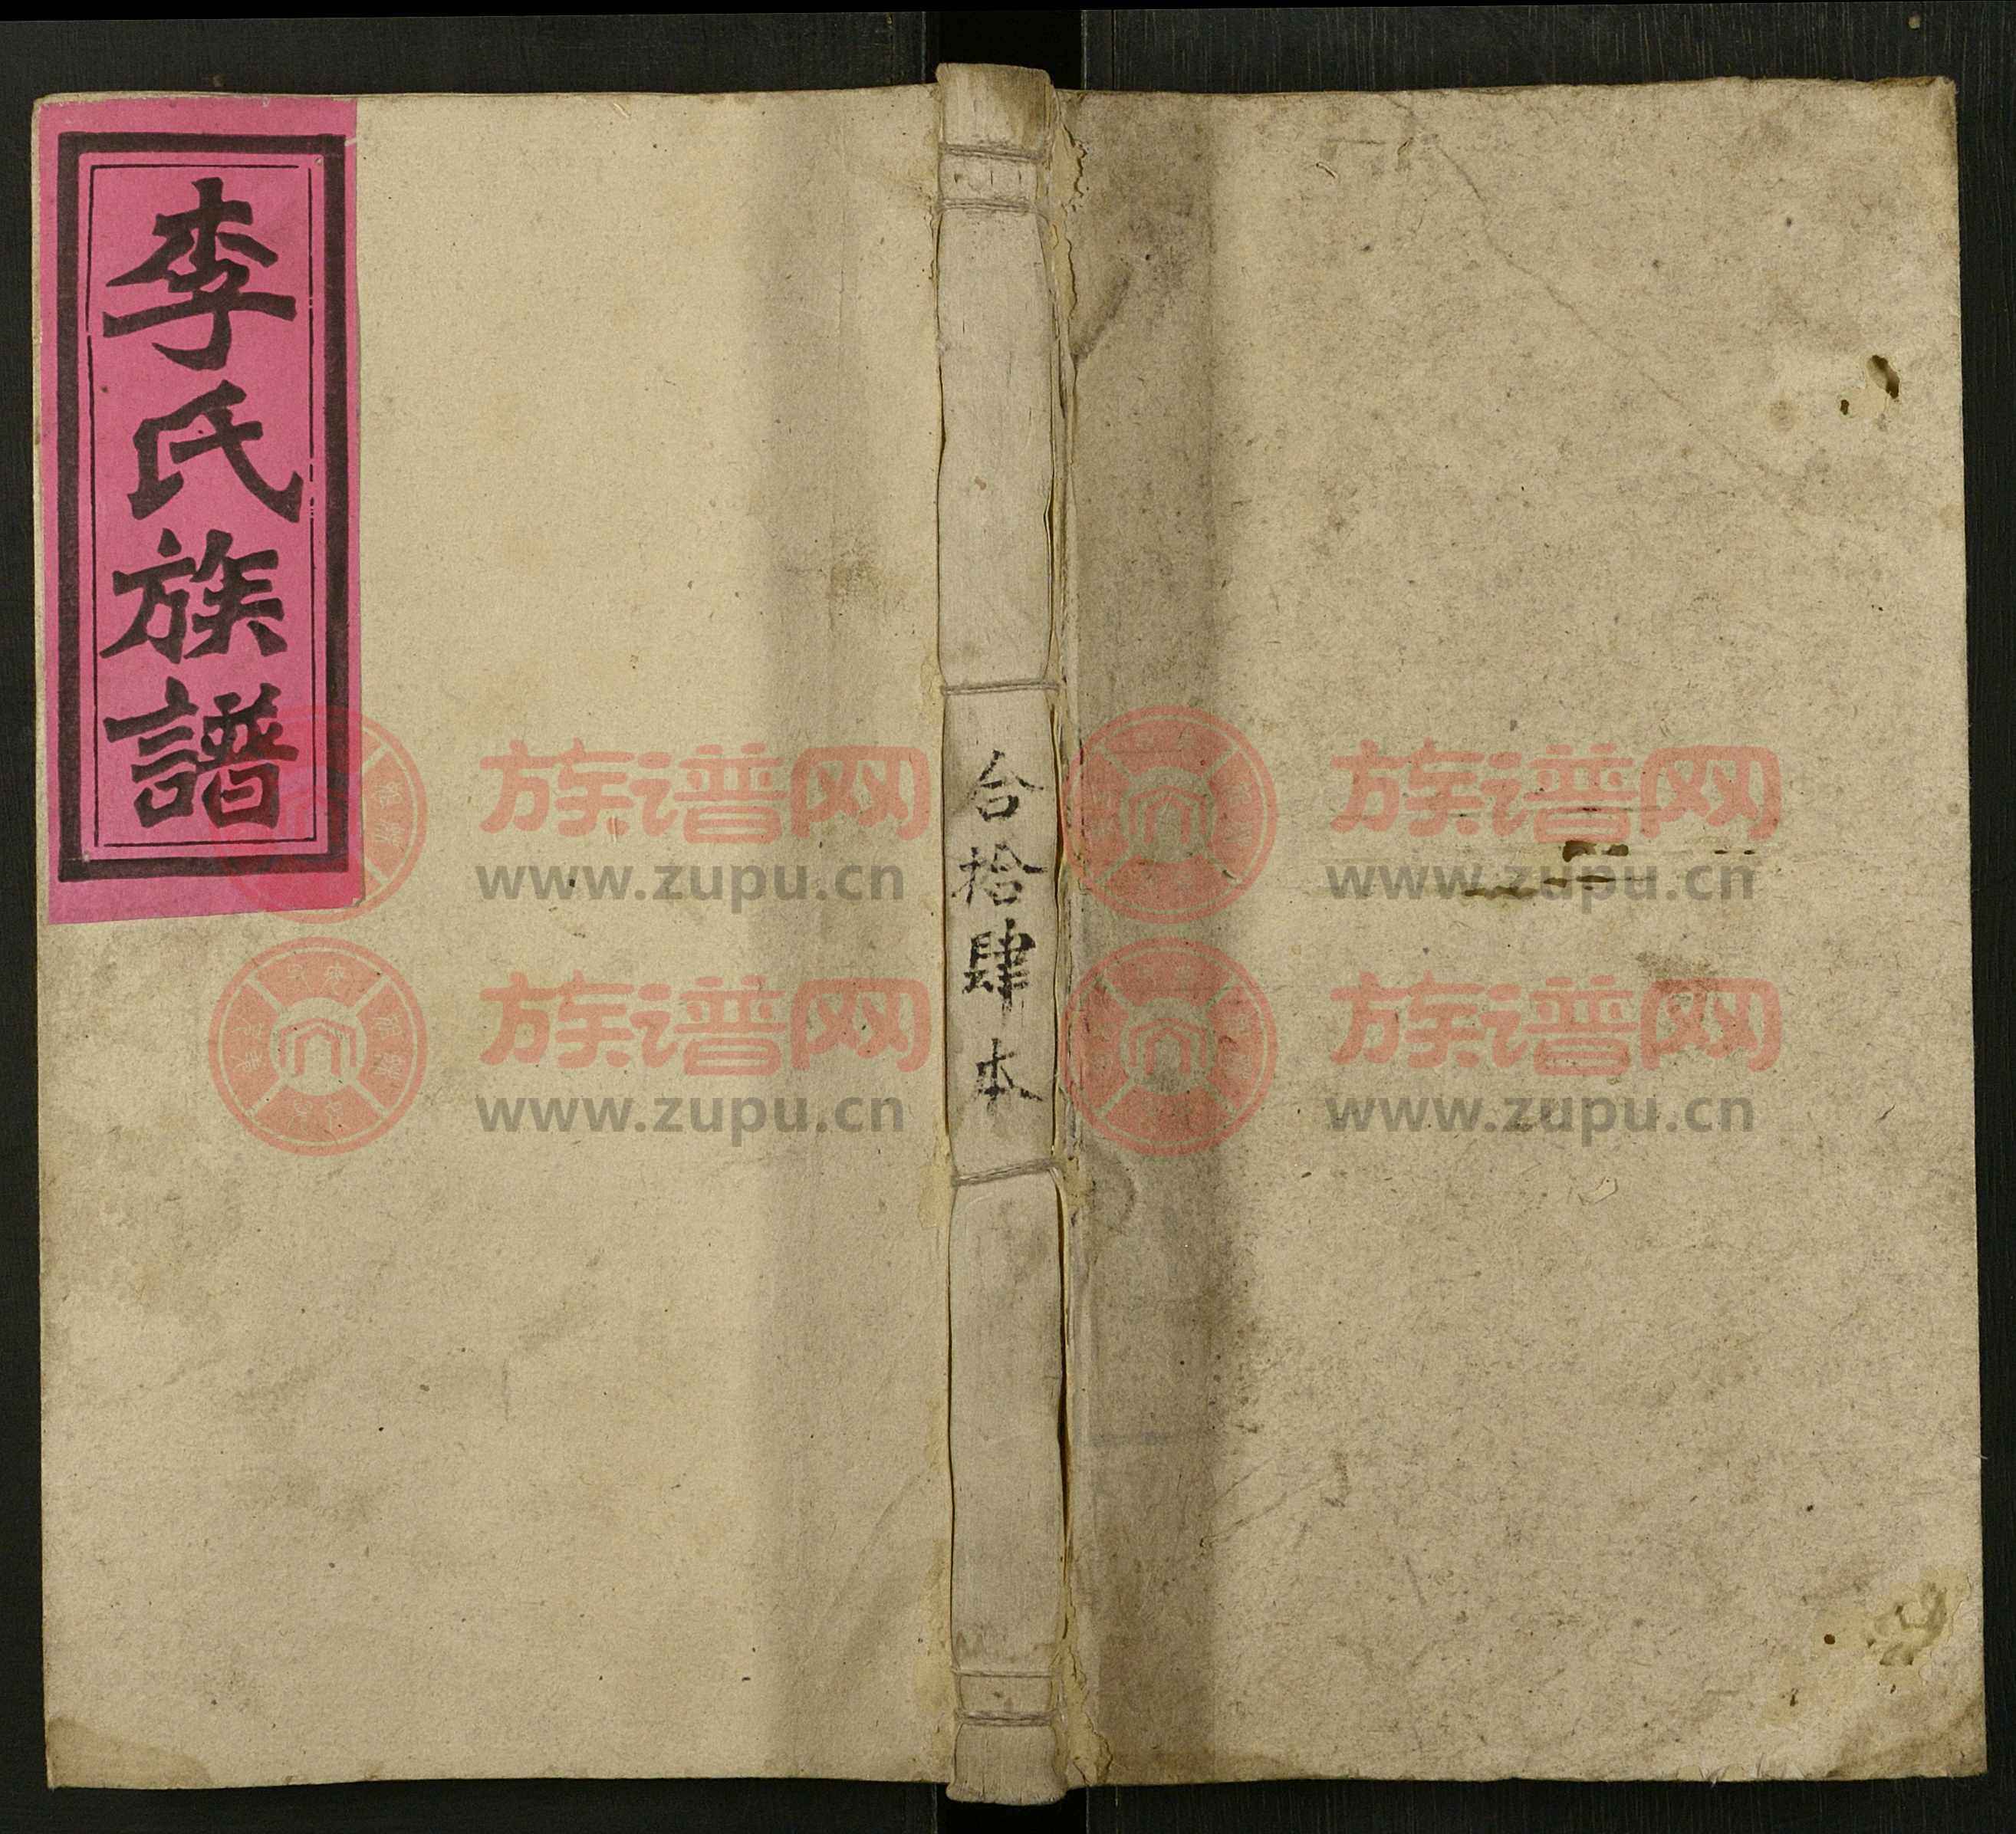 李氏族譜
台拾肆本
族谱网
www.zupu.cn
族谱网
www.zupu.cn
族谱网
www.zupu.cn
族谱网
www.zupu.cn